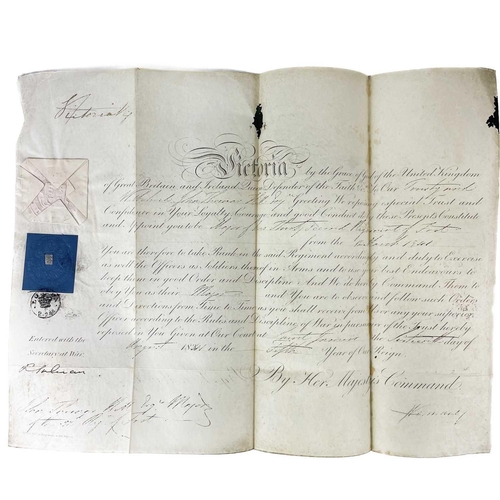 Victoria R
Victoria by the Grace of God of the United Kingdom
of Great Britain and Ireland Queen Defender of the Faith &c. To Our Trusty and
Well beloved Greeting We reposing especial Trust and
Confidence in Your Loyalty Courage and good Conduct do by these Presents Constitute
and Appoint you to be Major of Regiment of Foot
from the March 1841
You are therefore to take Rank in the said Regiment accordingly and duly to Exercise
as well the Officers as Soldiers thereof in Arms and to use your best Endeavours to
keep them in good Order and Discipline And We do hereby Command Them to
Obey You as their Major and You are to observe and follow such Orders
and Directions from Time to Time as you shall receive from Us or any your superior
Officer according to the Rules and Discipline of War in pursuance of the Trust hereby
reposed in You Given at Our Court at Saint James's the day of
August 1841 Year of Our Reign
Entered with the
Secretary at War
By Her Majesty's Command
Esqr Major
of Foot